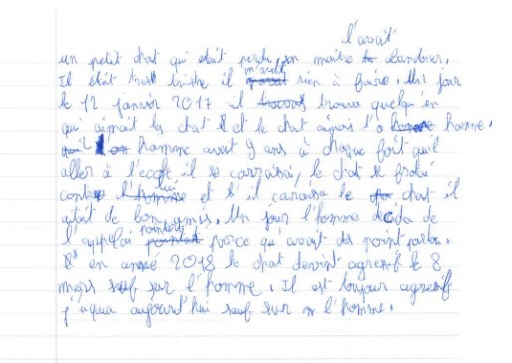 l'avait
un petit chat qui était perdu, son maître abandoner.
Il était triste il m'avait rien à faire. Un jour
le 12 janvier 2017 il trouva quelqu'un
qui aimait les chat et le chat aimais l'homme.
l'homme avait 9 ans à chaque foit qu'il
aller à l'école il se carraisai, le chat se frotai
contre lui et il caraissa le chat il
était de bon amis. Un jour l'homme décida de
l'appelai pointou parce qu'avait des point partou.
en anné 2018 le chat devint agresif le 8
mars sauf sur l'homme. Il est toujour agresif
j'uqua aujourd'hui sauf sur l'homme.